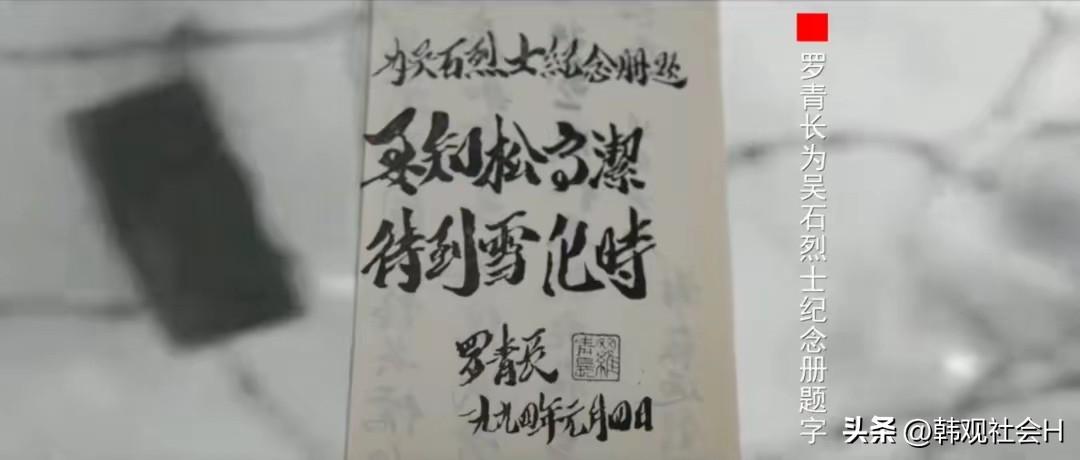 为吴石烈士紀念册题
要知松高潔
待到雪化時
罗青长
一九九四年元月四日
罗青长为吴石烈士纪念册题字
头条 @韩观社会H